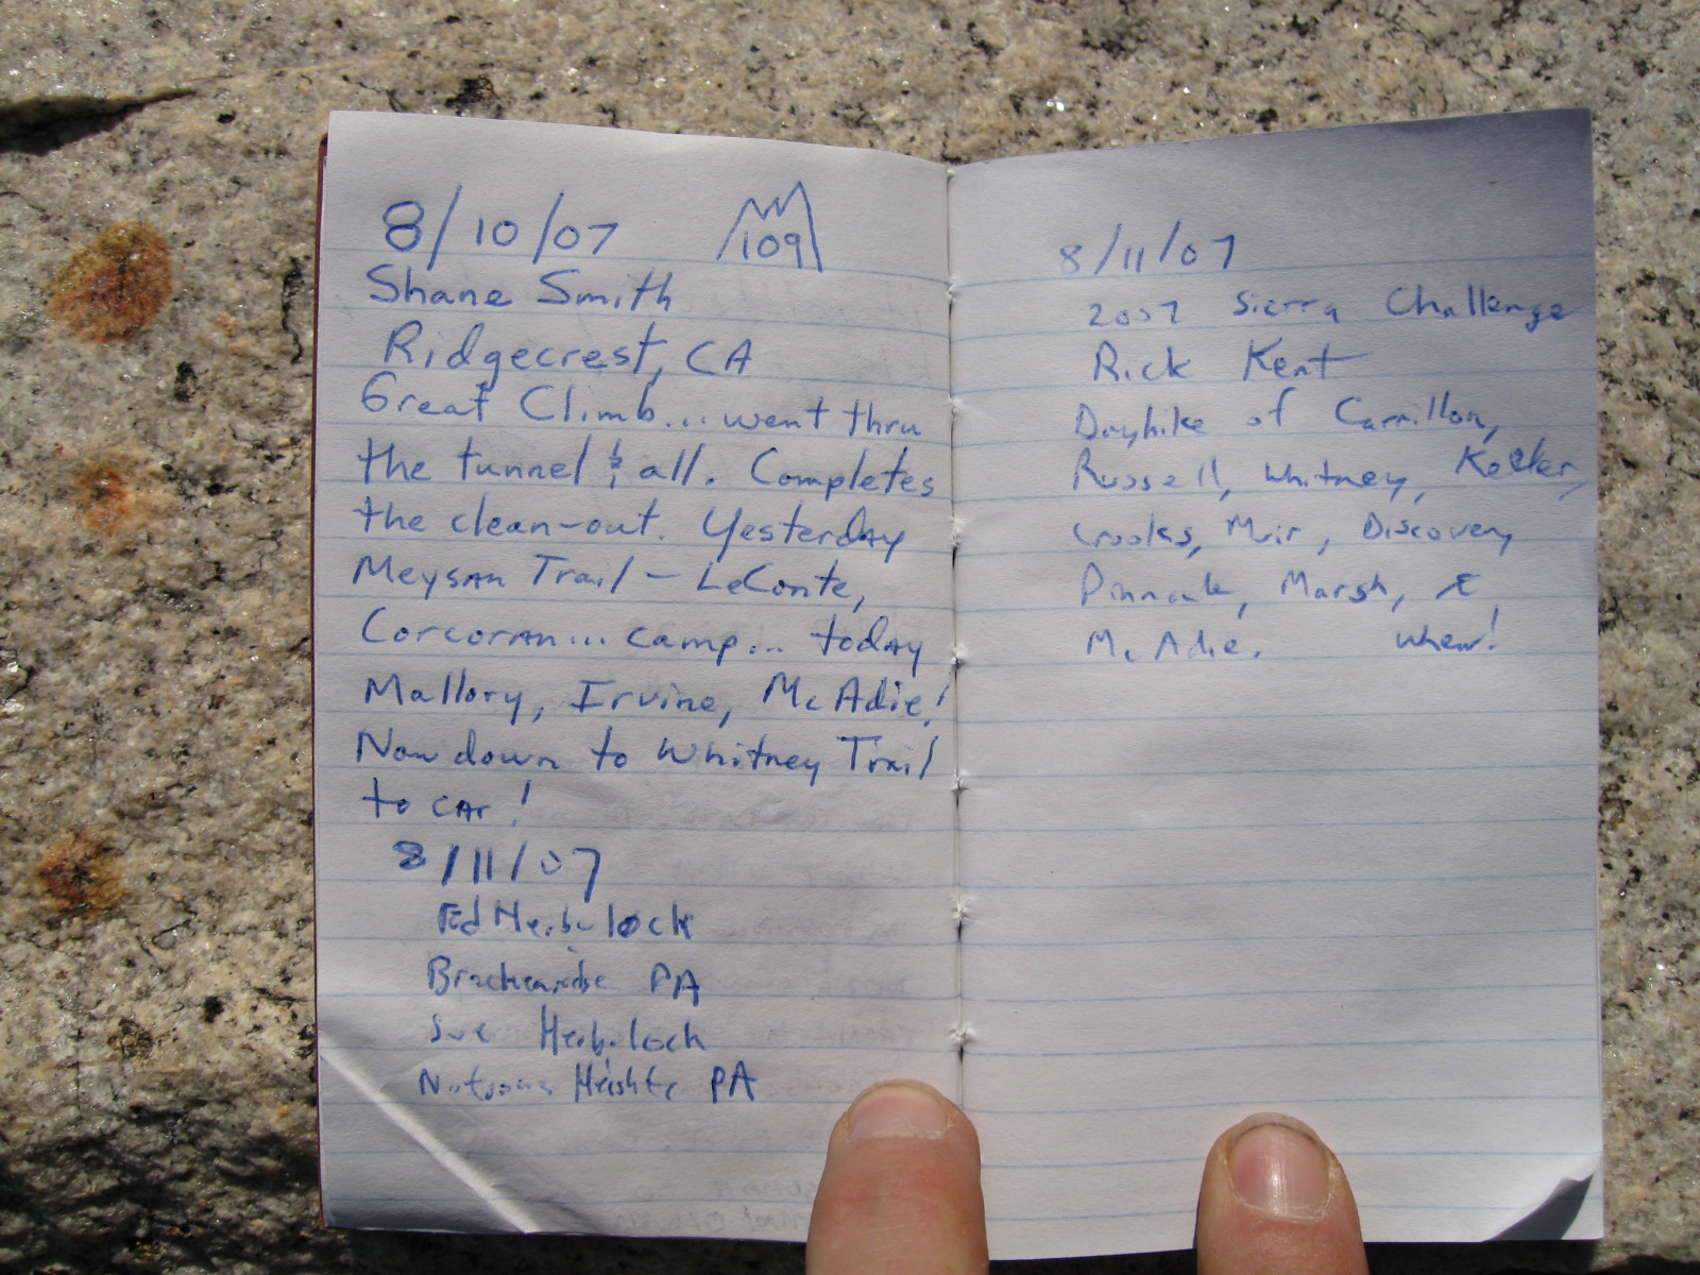 8/10/07 109
Shane Smith
Ridgecrest, CA
Great Climb... went thru
the tunnel & all. Completes
the clean-out. Yesterday
Meysan Trail – LeConte,
Corcoran... camp... today
Mallory, Irvine, McAdie!
Now down to Whitney Trail
to car!
8/11/07
Ed
PA
Sue
PA
8/11/07
2007 Sierra Challenge
Rick Kent
Dayhike of Carrillon,
Russell, Whitney, Keeler,
Crooks, Muir, Discovery
Pinnacle, Marsh, &
McAdie. Whew!